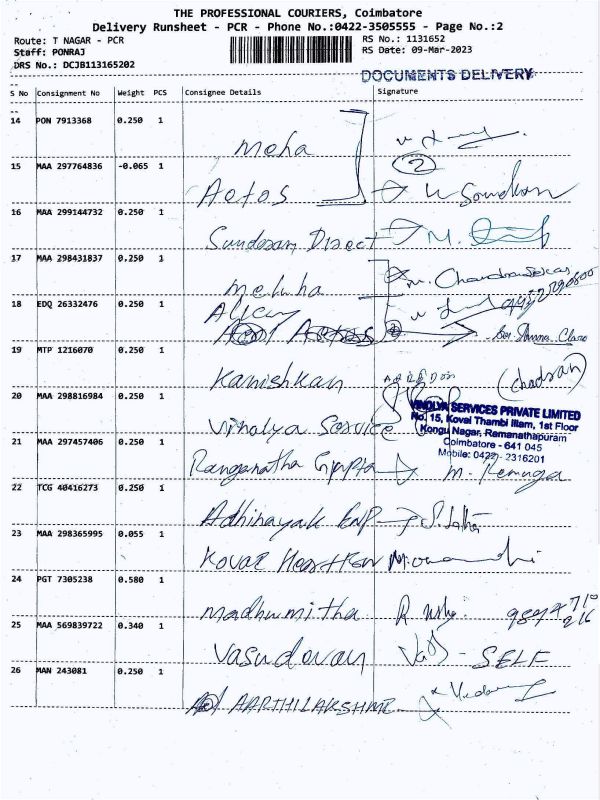 THE PROFESSIONAL COURIERS, Coimbatore
Delivery Runsheet - PCR - Phone No.:0422-3505555 - Page No.:2
Route: T NAGAR - PCR
RS No.: 1131652
Staff: PONRAJ
RS Date: 09-Mar-2023
DRS No.: DCJB113165202
DOCUMENTS DELIVERY
S No Consignment No Weight PCS Consignee Details Signature
14 PON 7913368 0.250 1
Meha
15 MAA 297764836 -0.065 1
2
Aetos
16 MAA 299144732 0.250 1
Sundaran Direct M.
17 MAA 298431837 0.250 1
Meluha M. Chandrasekar
18 EDQ 26332476 0.250 1
Aetos
19 MTP 1216070 0.250 1
Kanishkan
20 MAA 298816984 0.250 1
Vindlya Service
VINDLYA SERVICES PRIVATE LIMITED
No. 15, Kovai Thambi Illam, 1st Floor
Kongu Nagar, Ramanathapuram
Coimbatore - 641 045
Mobile: 0422) 2316201
21 MAA 297457406 0.250 1
Ranganatha Gupta M. Renuga
22 TCG 40416273 0.250 1
Adhinayak ENP
23 MAA 298365995 0.055 1
24 PGT 7305238 0.580 1
Madhumitha R
25 MAA 569839722 0.340 1
Vasudevan - SELF
26 MAN 243081 0.250 1
AARTHILAKSHME